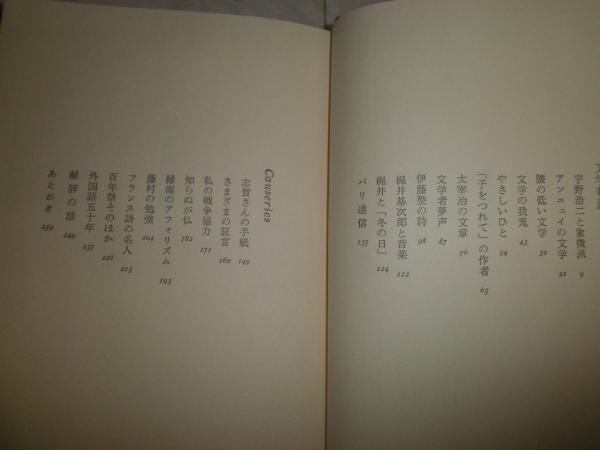 宇野浩二と象徴派 9
アンニュイの文学 21
腰の低い文学 32
文学の我鬼 43
やさしいひと 54
「子をつれて」の作者 65
太宰治の文章 76
文学者夢声 87
伊藤整の詩 98
梶井基次郎と音楽 112
梶井と「冬の日」 124
パリ通信 135
Causeries
志賀さんの手紙 149
さまざまの証言 160
私の戦争協力 171
知らぬが仏 182
緑雨のアフォリズム 193
藤村の勉強 204
フランス語の名人 215
百年祭そのほか 226
外国語五十年 237
献辞の話 249
あとがき 259